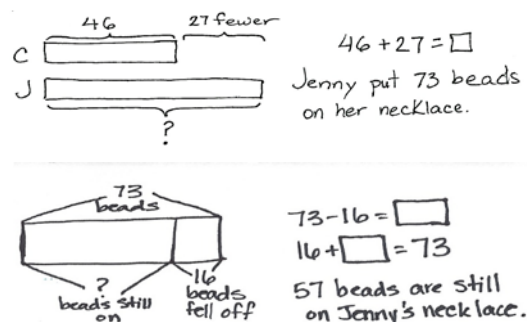 46 27 fewer
C
J
?
46 + 27 = □
Jenny put 73 beads
on her necklace.
73
beads
?
beads still
on
16
beads
fell off
73 - 16 = □
16 + □ = 73
57 beads are still
on Jenny's necklace.